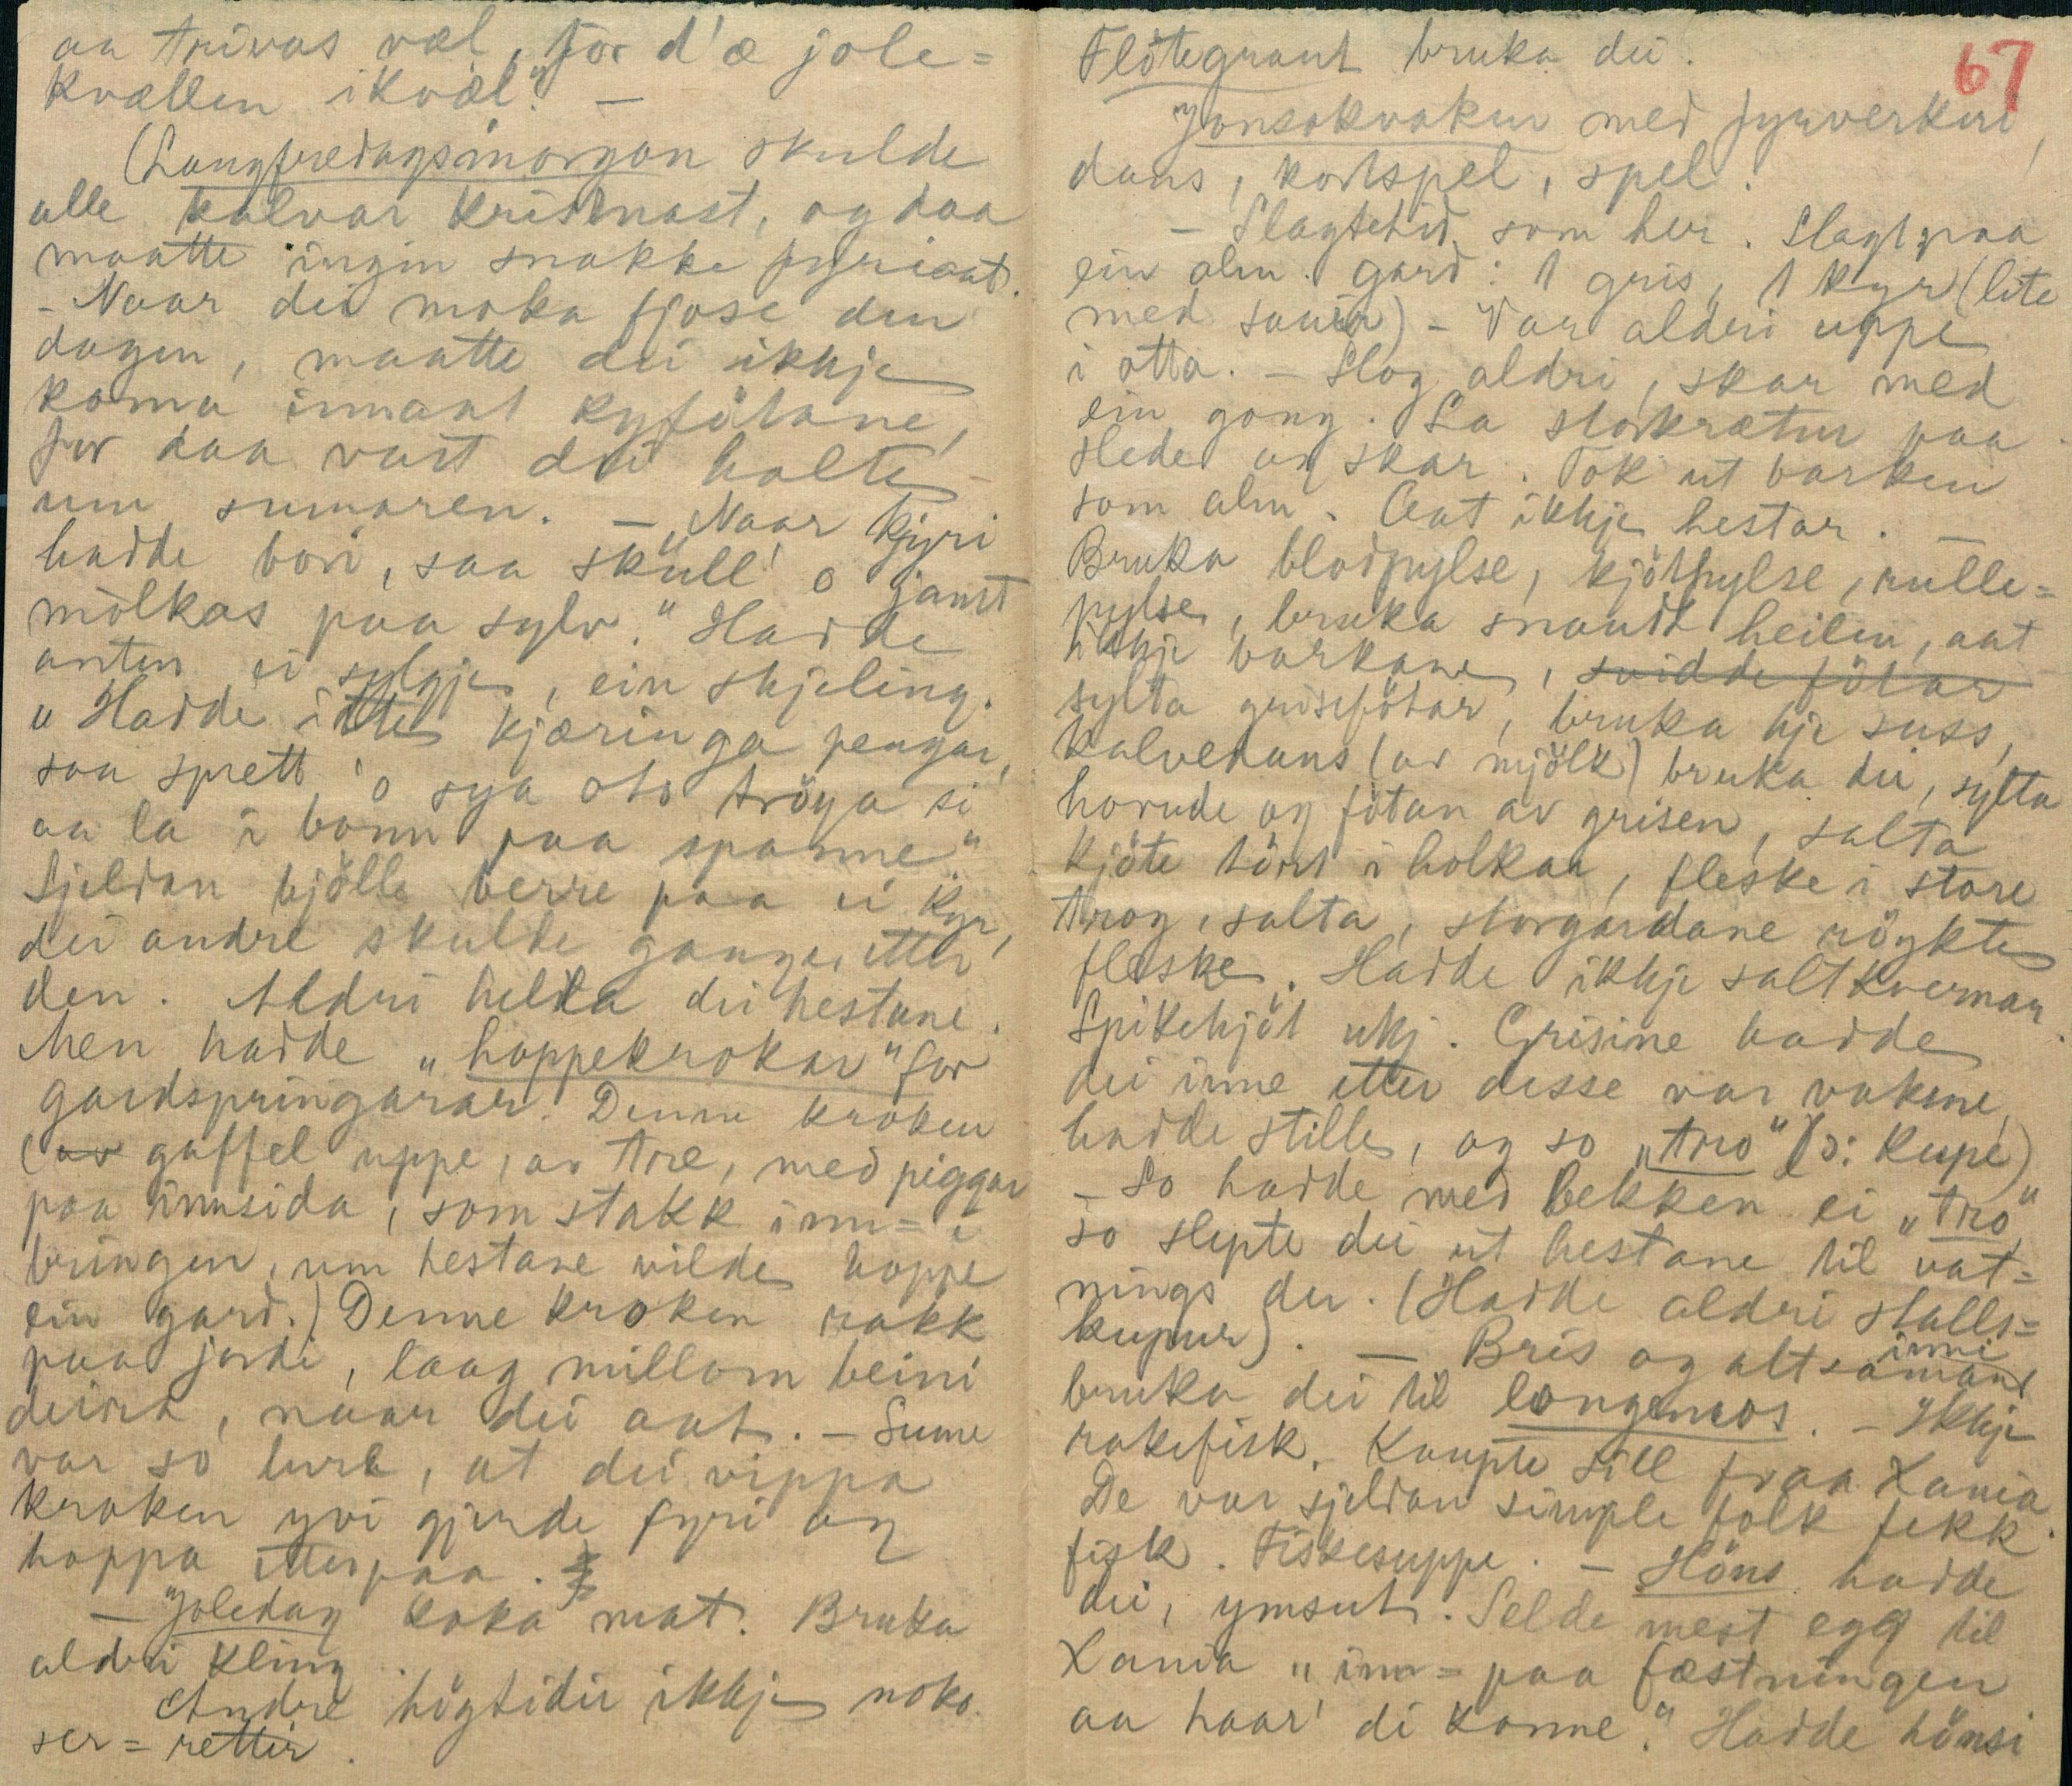 aa trivas væl, för d'æ jole=
kvællen ikvæl." —
(Langfredagsmorgon skulde
alle kalvar kristnast, og daa
maatte ingin snakke fyriaat.
- Naar dei moka fjose den
dagen, maatte dei ikkje
koma innant kyfötane,
for daa vart dei halte
um sumaren. — „Naar kjyri
hadde bori, saa skull' o jamt
mölkas paa sylv." Hadde
anten ei sylgje, ein skjeling.
„Hadde itte kjæringa pengar,
saa sprett o sya otor tröya si
aa la i bonn paa spanne."
Sjeldan bjölle berre paa ei kyr,
dei andre skulde ganga etter
den. Aldri helda dei hestane.
Men hadde „hoppekrokar" for
gardspringarar. Denne kroken
(av gaffel uppe, av tre, med piggar
paa innsida, som stakk inn= i
bringen, um hestane vilde hoppe
ein gard.) Denne kroken rakk
paa jordi, laag millom beini
deira, naar dei aat. — Sume
var so lure, at dei vippa
kroken yvi gjerde fyri og
hoppa etterpaa.
— Joledag koka mat. Bruka
aldri kling.
Andre högtidir ikkje noko
ser= rettir.
Flötegraut bruka dei.
67
Jonsokvakur med fyrverkeri,
dans, kortspel, spel.
— Slagtetid som her. Slagt paa
ein alm. gard: 1 gris, 1 kyr (lite
med sauir) - Var aldri uppe
i otta. — Slog aldri, skar med
ein gong. La storkrætur paa
slede og skar. Tok ut barken
som alm. Aat ikkje hestar. —
Bruka blodpylse, kjötpylse, rulle=
pylse, bruka snaudt heilen, aat
ikkje barkane, svidde fötar
sylta grisefötar, bruka kje suss,
kalvedans (av mjölk) bruka dei, sylta
hovude og fötan av grisen, salta
kjöte tört i holkar, fleske i store
trog, salta, storgardane röykte
fleske. Hadde ikkje saltkvernar.
Spikekjöt ukj. Grisine hadde
dei inne etter desse var vaksne,
hadde stille, og so „tro" (ɔ: kupe)
— So hadde med bekken ei „tro"
so slepte dei ut hestane til vat=
nings der. (Hadde aldri stalls=
kupur). — Bris og alt saman inni
bruka dei til longemos. — Ikkje
rakefisk. Kaupte sill fraa Xania.
De var sjeldan simple folk fekk
fisk. Fiskesuppe. — Höns hadde
dei, ymsut. Selde mest egg til
Xania „inn= paa fæstningen
aa haar' di konne." Hadde hönsi